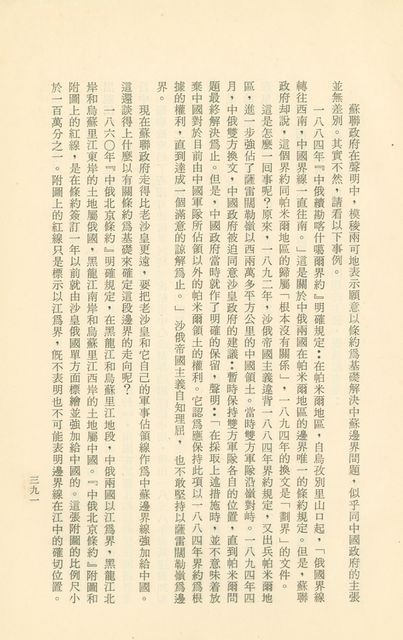 蘇聯政府在聲明中，模稜兩可地表示願意以條約爲基礎解決中蘇邊界問題，似乎同中國政府的主張
並無差別。其實不然，請看以下事例。
一八八四年『中俄續勘喀什噶爾界約』明確規定：在帕米爾地區，自烏孜別里山口起，「俄國界線
轉往西南，中國界線一直往南。」這是關於中俄兩國在帕米爾地區的邊界唯一的條約規定。但是，蘇聯
政府却說，這個界約同帕米爾地區的歸屬「根本沒有關係」，一八九四年的換文是「劃界」的文件。
這是怎麼一回事呢？原來，一八九二年，沙俄帝國主義違背一八八四年界約規定，又出兵帕米爾地
區，進一步強佔了薩雷闊勒嶺以西兩萬多平方公里的中國領土。當時雙方軍隊沿嶺對峙。一八九四年四
月，中俄雙方換文，中國政府被迫同意沙皇政府的建議：暫時保持雙方軍隊各自的位置，直到帕米爾問
題最終解決爲止。但是，中國政府當時就作了明確的保留，聲明：「在採取上述措施時，並不意味着放
棄中國對於目前由中國軍隊所佔領以外的帕米爾領土的權利。它認爲應保持此項以一八八四年界約爲根
據的權利，直到達成一個滿意的諒解爲止。」沙俄帝國主義自知理屈，也不敢堅持以薩雷闊勒嶺爲邊
界。
現在蘇聯政府走得比老沙皇更遠，要把老沙皇和它自己的軍事佔領線作爲中蘇邊界線強加給中國。
這還談得上什麼以有關條約爲基礎來確定這段邊界的走向呢？
一八六〇年『中俄北京條約』明確規定，在黑龍江和烏蘇里江地段，中俄兩國以江爲界，黑龍江北
岸和烏蘇里江東岸的土地屬俄國，黑龍江南岸和烏蘇里江西岸的土地屬中國。『中俄北京條約』附圖和
附圖上的紅線，是在條約簽訂一年以前就由沙皇俄國單方面標繪並強加給中國的。這張附圖的比例尺小
於一百萬分之一。附圖上的紅線只是標示以江爲界，旣不表明也不可能表明邊界線在江中的確切位置。
三九一